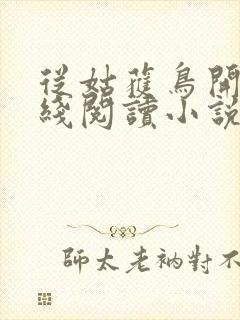 從姑蘿鳥開
綫閱讀小説
師太老衲對不